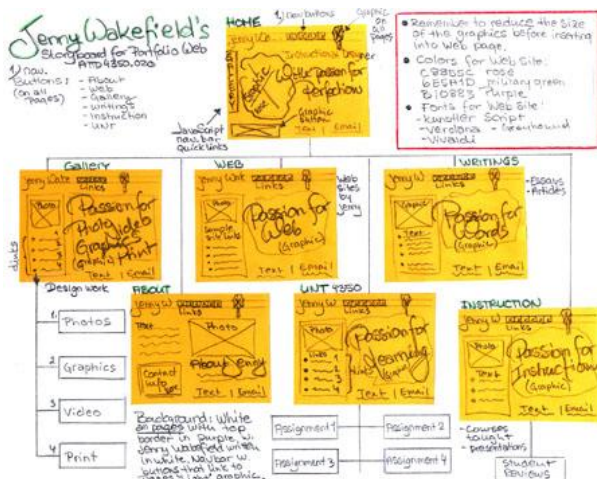 Jenny Wakefield's
Storyboard for Portfolio Web
ATTD 4350.020
1) nav.
buttons:
(on all
Pages)
- About
- Web
- Gallery
- Writings
- Instruction
- UNT
HOME
1) nav buttons
Graphic
on
all pages
Jenny Wa
Instructional Designer
Graphic
rose
the passion for
perfection
Graphic
button
Text | Email
JavaScript
nav bar
quick links
• Remember to reduce the size
of the graphics before inserting
into web page.
• Colors for Web site:
rose
military green
Purple
• Fonts for Web site:
Script
- Verdana - Greyhound
- Vivaldi
Gallery
Jenny Wake
Links
Photo
Passion for
Photo Video
Graphics
(Graphic) Print
Text | Email
Links
WEB
Jenny Wak
Links
Photo
Sample
Site Links
Passion for
Web
(Graphic)
Text | Email
Web
sites
by
Jenny
WRITINGS
Jenny W
Links
Graphic
Text
Passion for
Words
(Graphic)
Text | Email
- Essays
- Articles
Design work
1. Photos
2 Graphics
3 Video
4 Print
ABOUT
Jenny W.
Links
Text
Photo
Contact
Info
About Jenny
Text | Email
UNT 4350
Jenny W
Links
Photo
Links
1
2
3
4
Passion for
learning
Text | Email
INSTRUCTION
Jenny W
Links
Photo
Text
Passion for
Instruction
(Graphic)
Text | Email
Background: White
on pages with top
border in purple. W.
Jenny Wakefield written
in white. Navbar w.
buttons that link to
Assignment 1
Assignment 2
Assignment 3
Assignment 4
- Courses
taught
- presentations
Student
Reviews